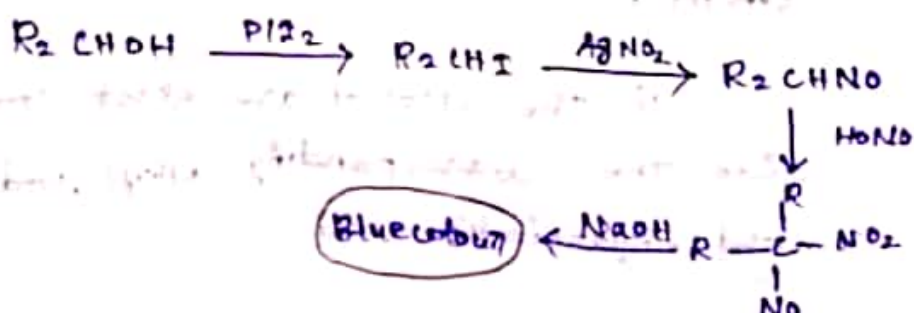 R₂ CHOH P/I₂ R₂ CHI AgNO₂ R₂ CHNO
HONO
R
Bluecolour NaOH R — C — NO₂
NO